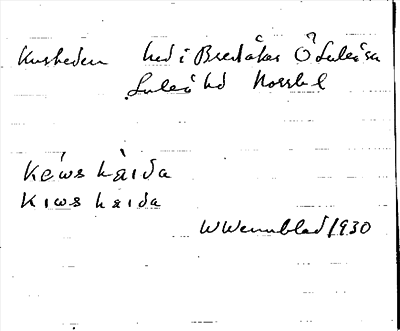 Kusheden hed i Bredåker Ö Luleå sn
Luleå hd Norrb l
Kéws hàida
Kıws haıda
W Wennblad 1930